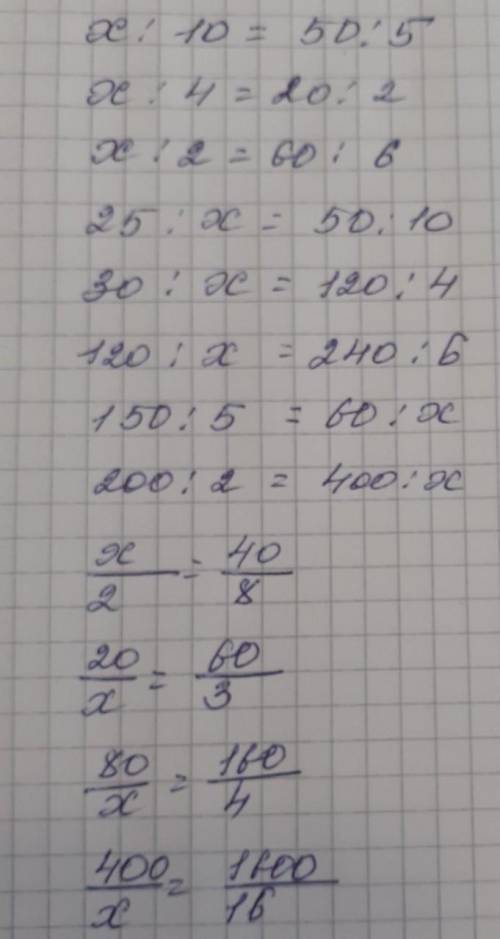 x : 10 = 50 : 5
x : 4 = 20 : 2
x : 2 = 60 : 6
25 : x = 50 : 10
30 : x = 120 : 4
120 : x = 240 : 6
150 : 5 = 60 : x
200 : 2 = 400 : x
x/2 = 40/8
20/x = 60/3
80/x = 160/4
400/x = 1600/16